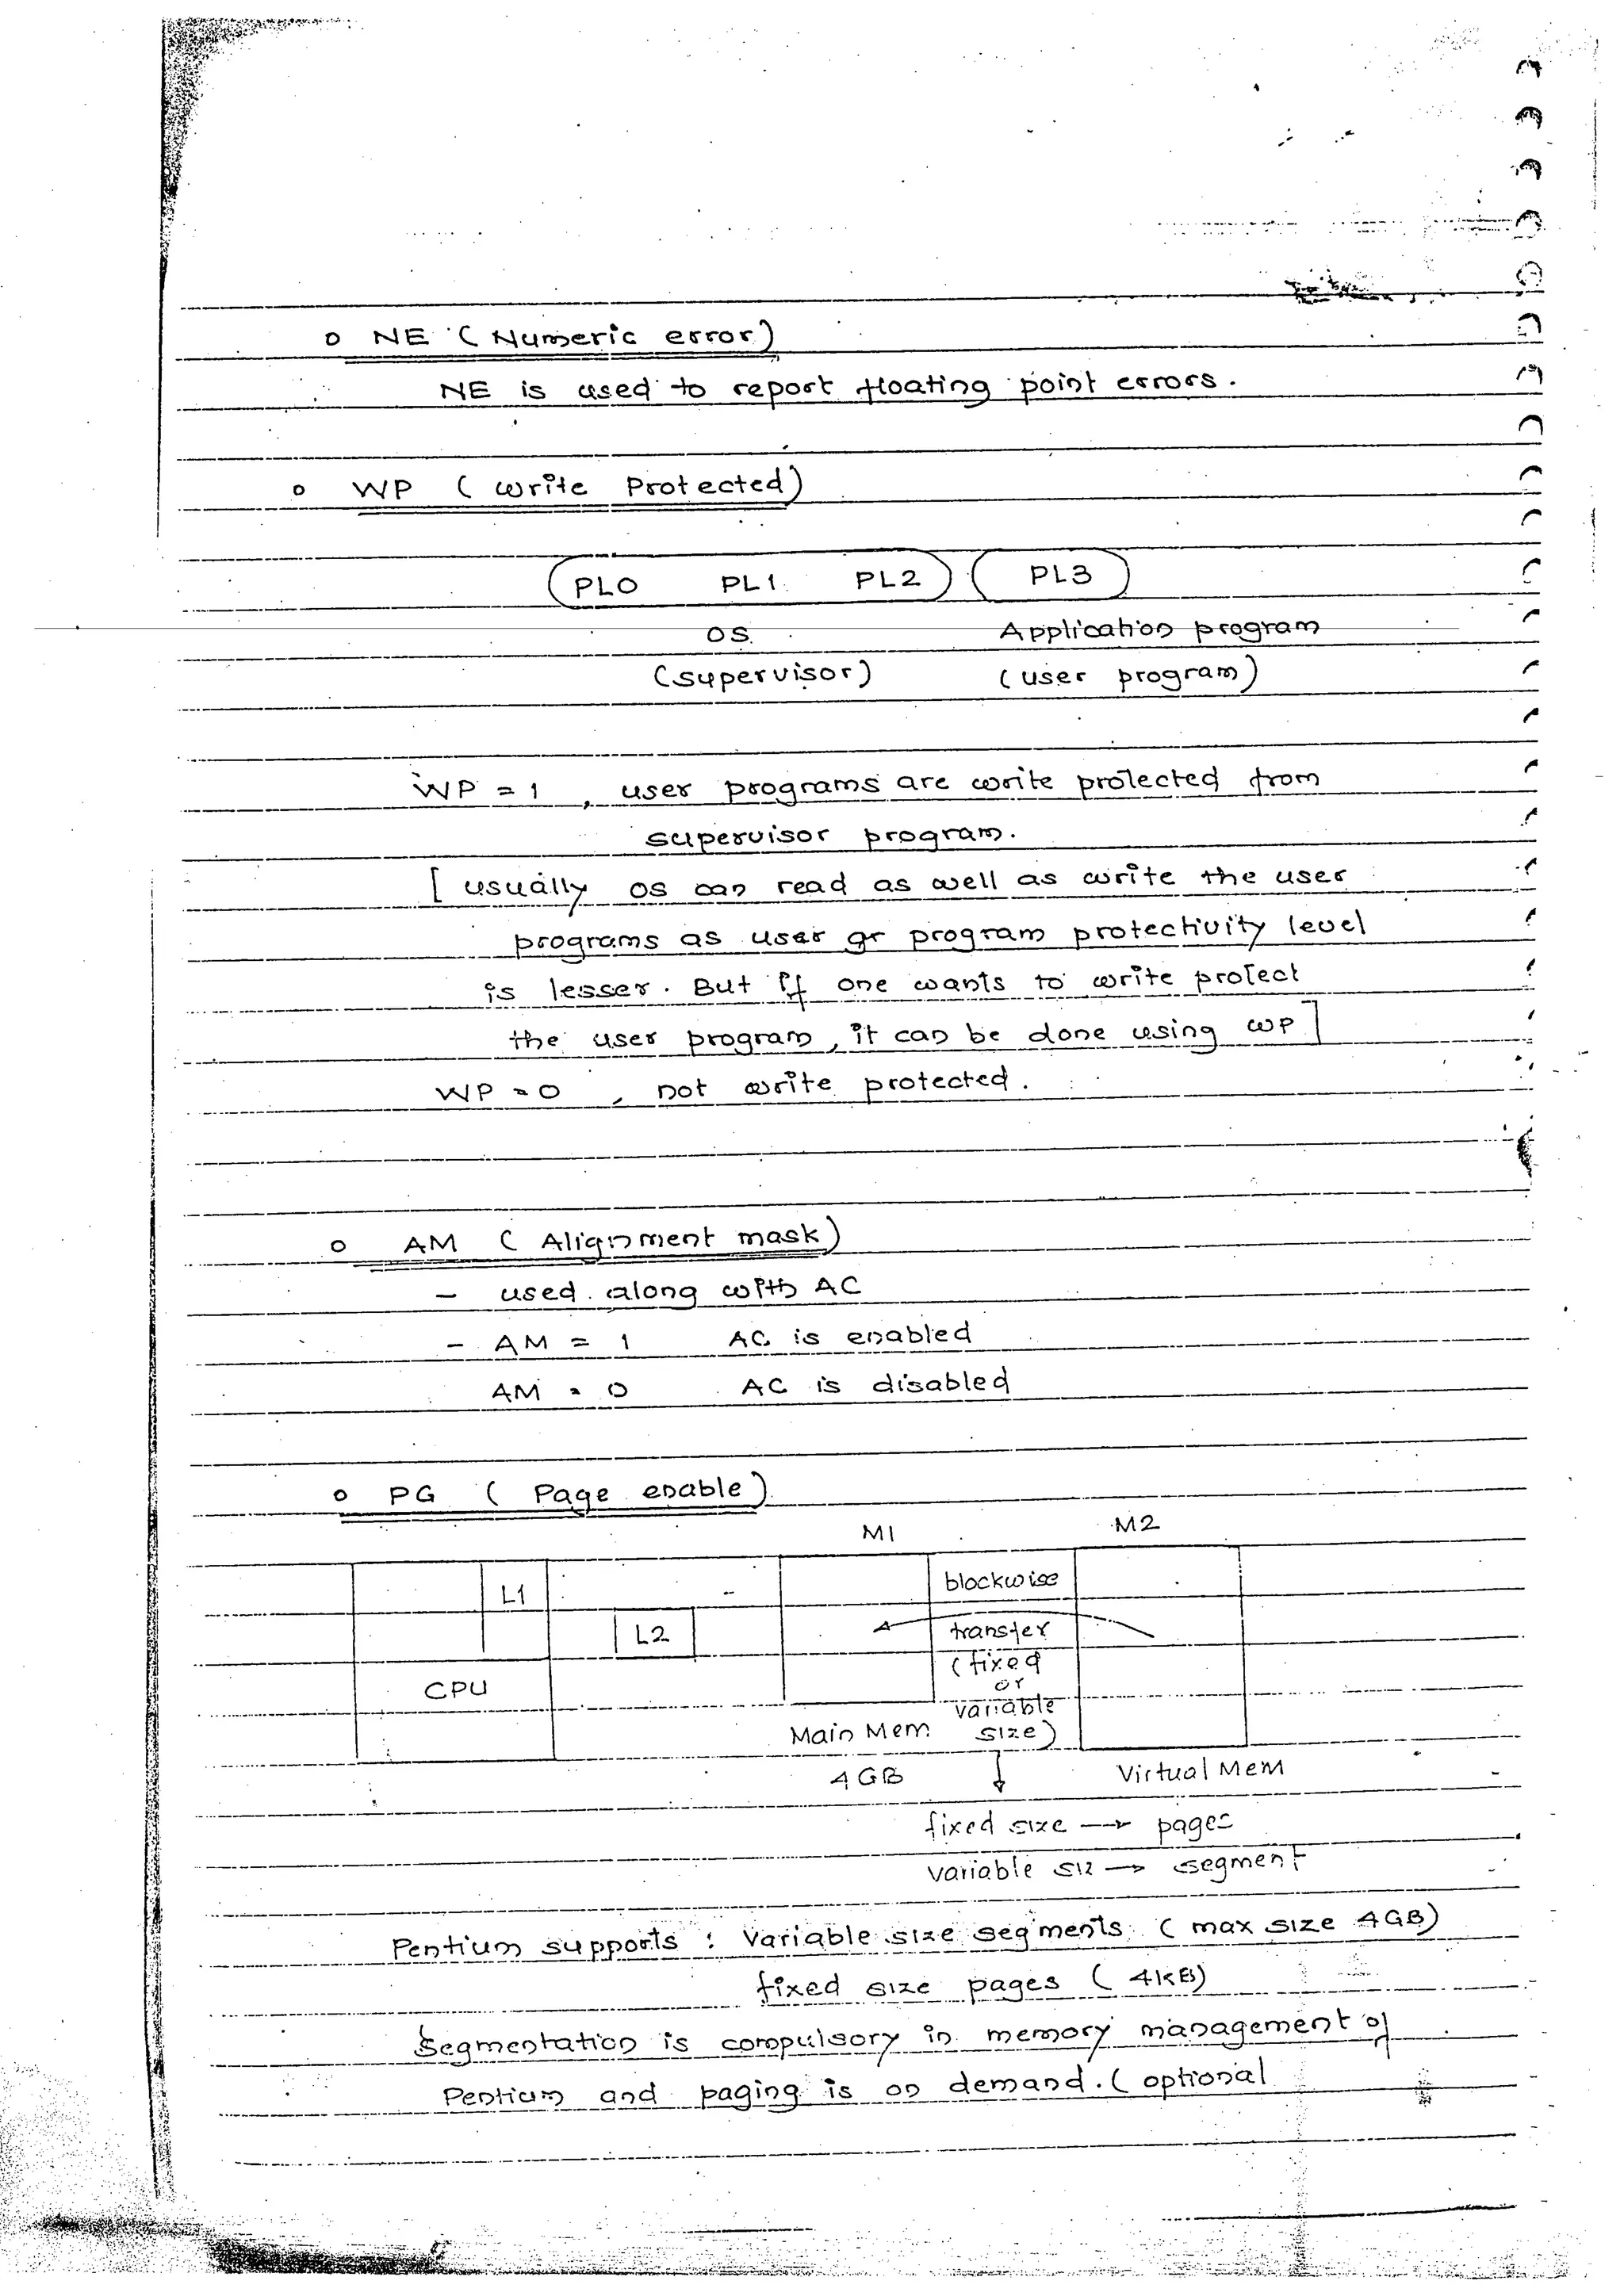 o NE ( Numeric error)
NE is used to report floating point errors.
o WP ( write Protected)
PL0 PL1 PL2 PL3
OS Application program
(supervisor) ( user program)
WP = 1 , user programs are write protected from
supervisor program.
[ usually OS can read as well as write the user
programs as user program protectivity level
is lesser. But if one wants to write protect
the user program, it can be done using WP ]
WP = 0 , not write protected.
o AM ( Alignment mask)
– used along with AC
– AM = 1 AC is enabled
AM = 0 AC is disabled
o PG ( Page enable)
M1 M2
L1 blockwise
L2 transfer
(fixed
CPU or
variable
Main Mem size)
4 GB Virtual Mem
fixed size → pages
variable siz → segment
Pentium supports : Variable size segments ( max size 4GB)
fixed size pages ( 4KB)
Segmentation is compulsory in memory management of
Pentium and paging is on demand. ( optional